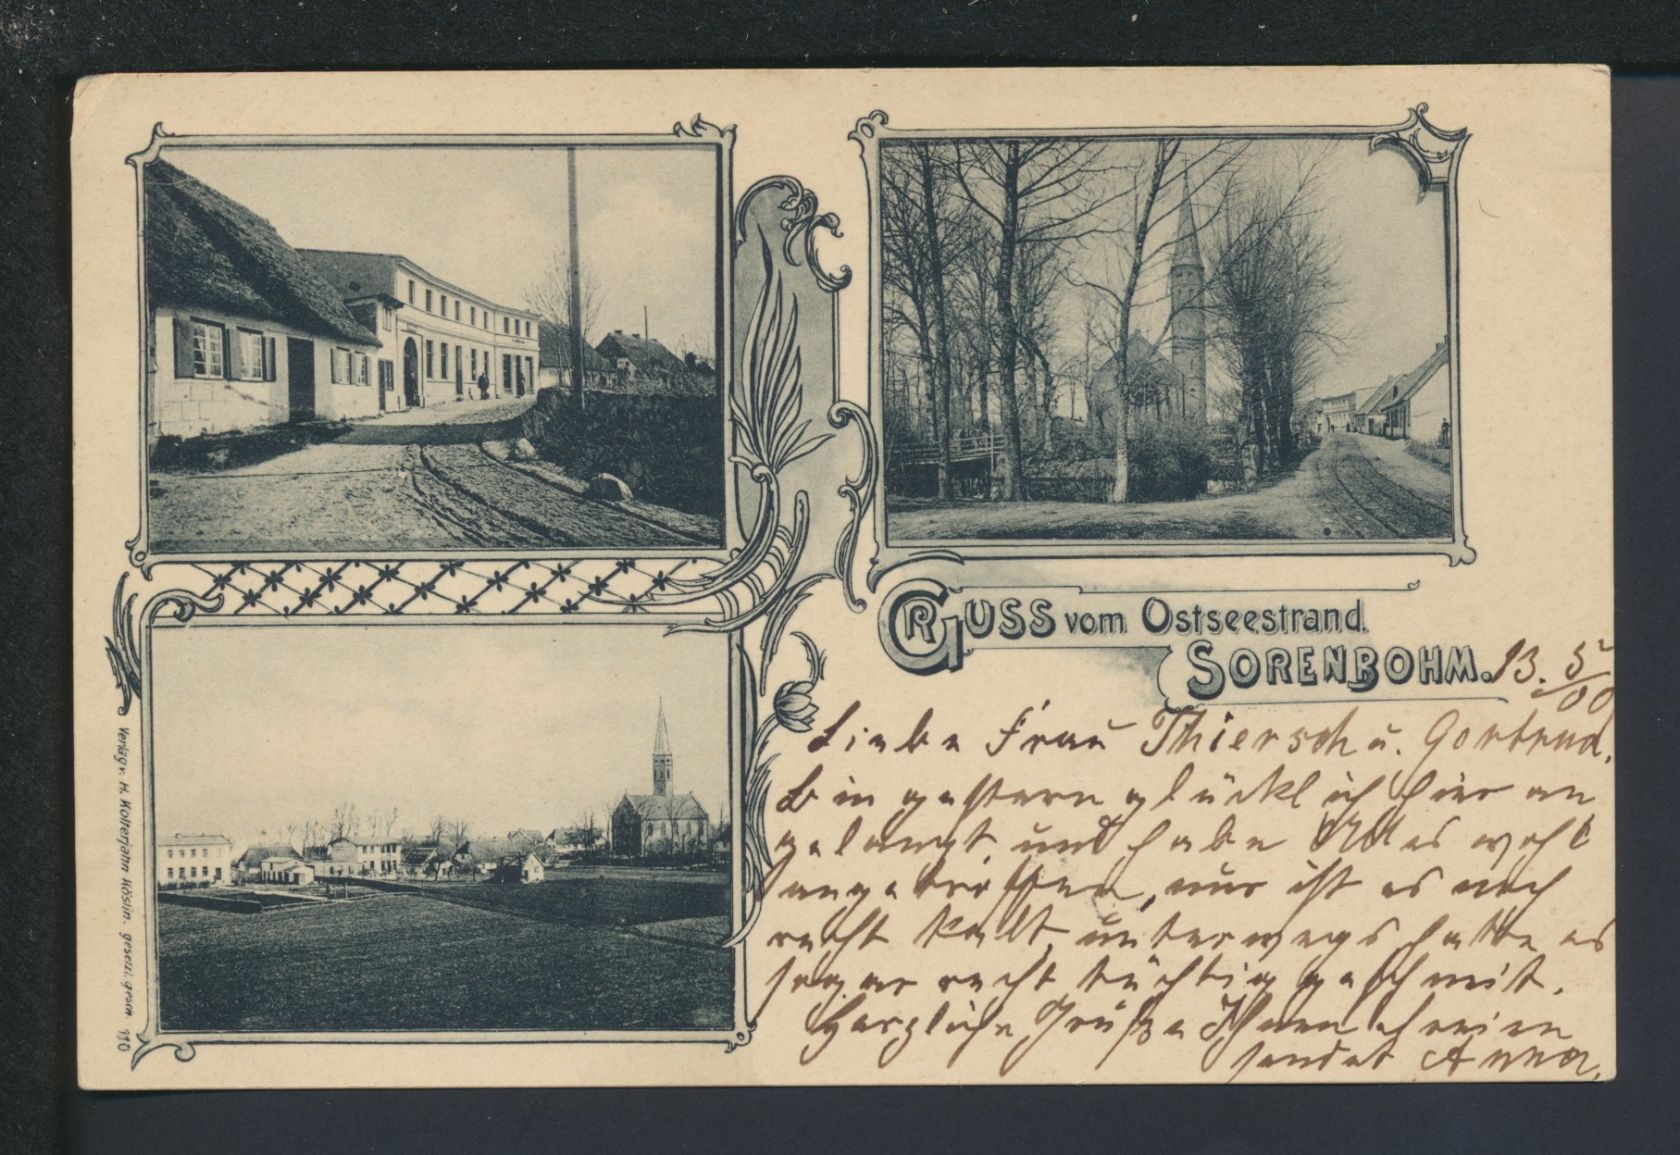 GRUSS vom Ostseestrand
SORENBOHM. 13. 5/00
Liebe Frau Thiersch u. Gertrud.
Bin gestern glücklich hier an
gelangt und habe Alles wohl
angetroffen, nur ist es noch
recht kalt, unterwegs hatte es
sogar recht tüchtig geschneit.
Herzliche Grüße Ihnen
sendet Anna.
Verlag v. H. Molterjahn Köslin. gesetzl. gesch. 110